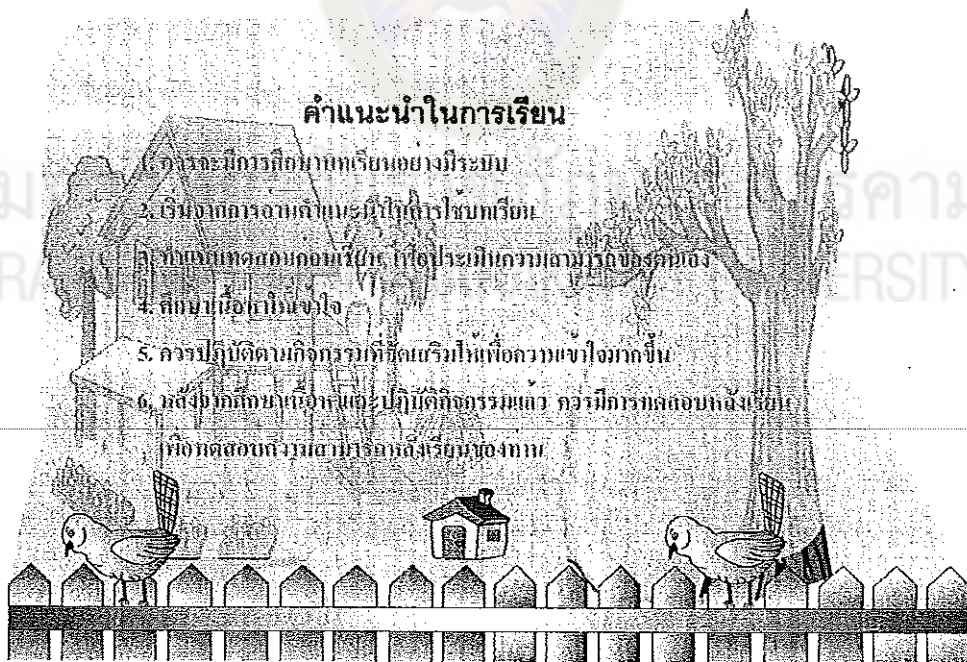 คำแนะนำในการเรียน
1. ควรจะมีการศึกษาบทเรียนอย่างมีระเบียบ
2. เริ่มจากการอ่านคำแนะนำในการใช้บทเรียน
3. ทำแบบทดสอบก่อนเรียน เพื่อประเมินความสามารถของตนเอง
4. ศึกษาเนื้อหาให้เข้าใจ
5. ควรปฏิบัติตามกิจกรรมที่จัดเสริมให้เพื่อความเข้าใจมากขึ้น
6. หลังจากศึกษาเนื้อหาและปฏิบัติกิจกรรมแล้ว ควรมีการทดสอบหลังเรียน
เพื่อทดสอบความสามารถหลังเรียนของท่าน